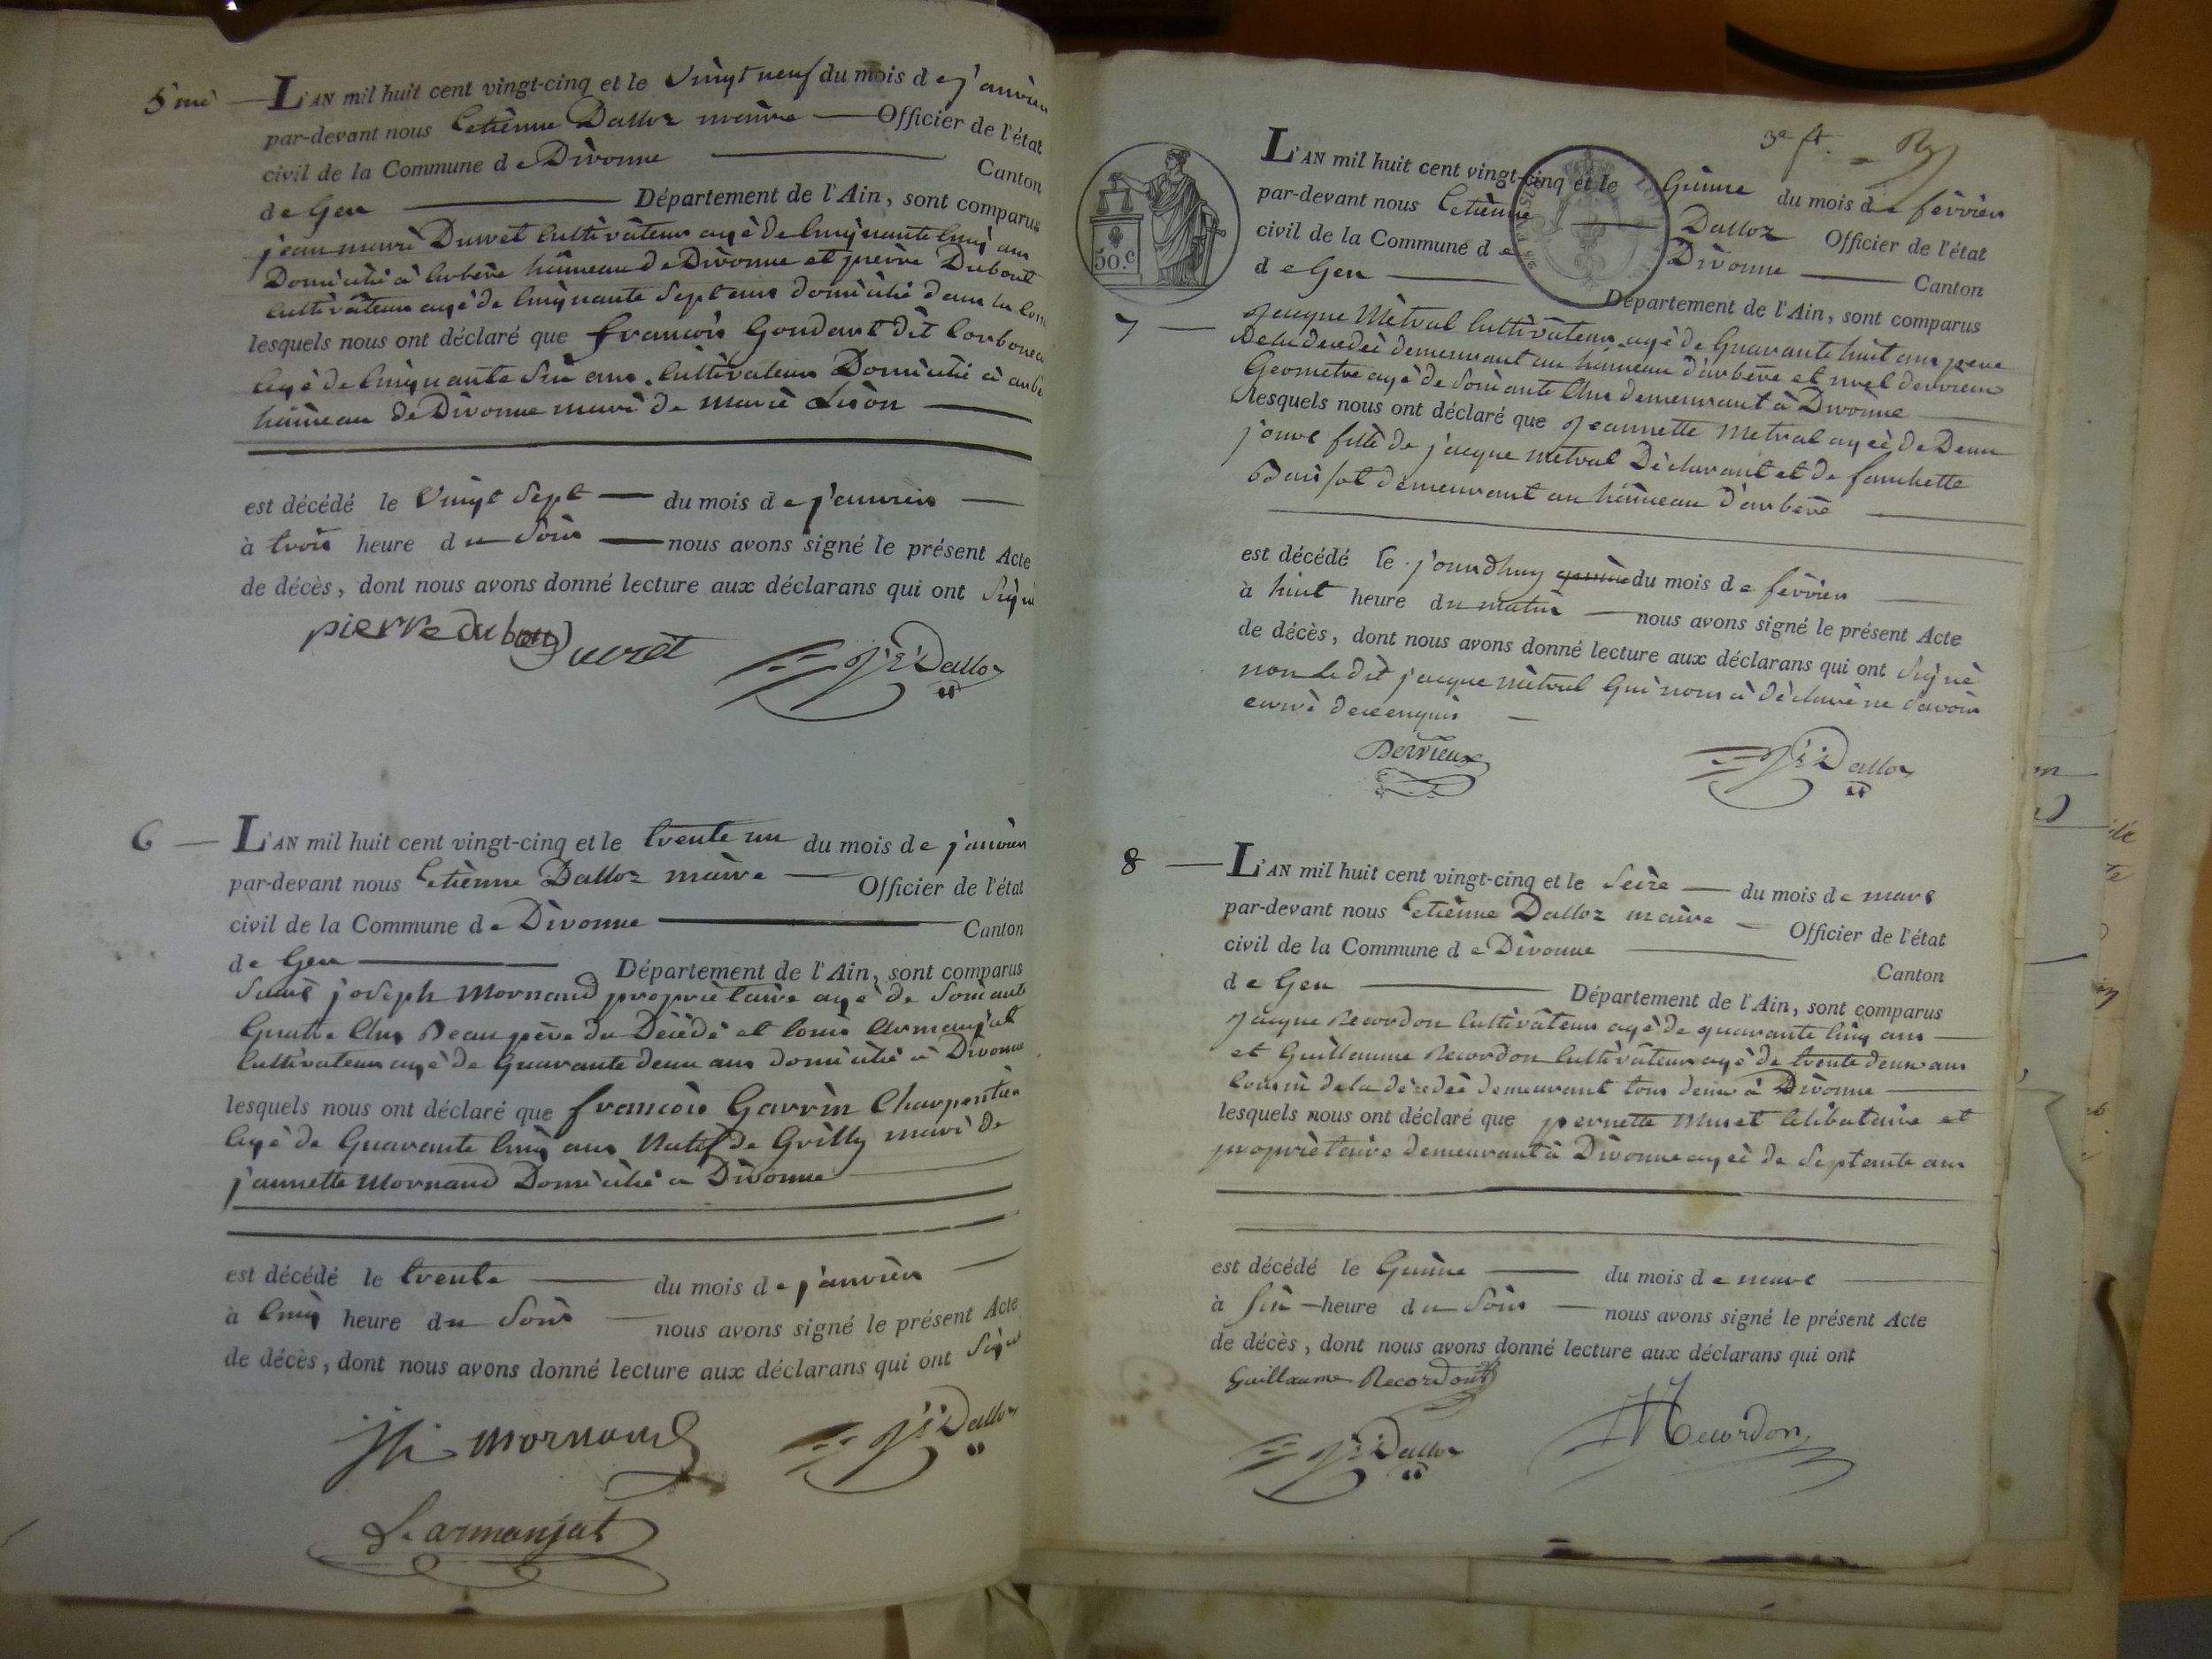 5me L'AN mil huit cent vingt-cinq et le vingt neuf du mois de janvier
par-devant nous Etiènne Dalloz maire Officier de l'état
civil de la Commune de Divonne Canton
de Gex Département de l'Ain, sont comparus
jean marie Duvret Cultivateur agé de Cinquante Cinq ans
Domicilié à arbère hameau de Divonne et pierre Dubout
Cultivateur agé de Cinquante Sept ans domicilié dans la Com
lesquels nous ont déclaré que françois Goudart dit
Agé de Cinquante Six ans Cultivateur Domicilié à arbè
hàmeau de Divonne mari de marie
est décédé le Vingt Sept du mois de janvier
à trois heure du Soir nous avons signé le présent Acte
de décès, dont nous avons donné lecture aux déclarans qui ont Signé
pierre dubout Duvret Dalloz
6 L'AN mil huit cent vingt-cinq et le trente un du mois de janvier
par-devant nous Etiènne Dalloz maire Officier de l'état
civil de la Commune de Divonne Canton
de Gex Département de l'Ain, sont comparus
joseph Mornand propriètaire agé de Soixante
Quatre Ans Beau père du Décédé et louis Armanjat
Cultivateur agé de Quarante deux ans domicilié à Divonne
lesquels nous ont déclaré que françois Garrin Charpentier
Agé de Quarante Cinq ans Natif de Grilly mari de
jannette Mornand Domicilié à Divonne
est décédé le trente du mois de janvier
à Cinq heure du Soir nous avons signé le présent Acte
de décès, dont nous avons donné lecture aux déclarans qui ont Signé
Mornand Dalloz
L. armanjat
3e ft.
50.C
L'AN mil huit cent vingt-cinq et le Quinze du mois de février
par-devant nous Etiènne Dalloz Officier de l'état
civil de la Commune de Divonne Canton
de Gex Département de l'Ain, sont comparus
7 Jacque Mètral Cultivateur agé de Quarante huit ans pere
De la décedeé demeurant au hàmeau d'arbère et
Geometre agé de Soixante Ans demeurant à Divonne
lesquels nous ont déclaré que Jeannette Metral agéè de Deux
jours fille de jacque metral Dèclarant et de fanchette
demeurant au hàmeau d'arbère
est décédé le jourdhuy quinze du mois de février
à huit heure du matin nous avons signé le présent Acte
de décès, dont nous avons donné lecture aux déclarans qui ont Signé
non le dit jacque mètral Qui nous à dèclaré ne Savoir
de ce enquis
Derrieux Dalloz
8 L'AN mil huit cent vingt-cinq et le Seize du mois de mars
par-devant nous Etiènne Dalloz maire Officier de l'état
civil de la Commune de Divonne Canton
de Gex Département de l'Ain, sont comparus
Jacque Recordon Cultivateur agé de quarante Cinq ans
et Guillaume Recordon Cultivateur agé de trente deux ans
Cousin de la décédée demeurant tous deux à Divonne
lesquels nous ont déclaré que pernette Muret Célibataire et
propriètaire demeurant à Divonne agéè de Septante ans
est décédé le Quinze du mois de mars
à Six heure du Soir nous avons signé le présent Acte
de décès, dont nous avons donné lecture aux déclarans qui ont
Guillaume Recordont
Dalloz Recordon